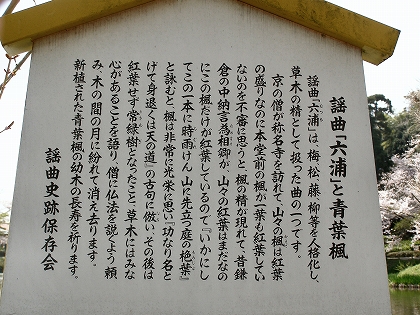 謡曲「六浦」と青葉楓
謡曲「六浦」は、梅、松、藤、柳等を人格化し、
草木の精として扱った曲の一つです。
京の僧が称名寺を訪れて、山々の楓は紅葉
の盛りなのに本堂前の楓が一葉も紅葉してい
ないのを不審に思うと、楓の精が現れて、昔鎌
倉の中納言為相卿が、山々の紅葉はまだなの
にこの楓だけが紅葉しているので『いかにし
てこの一本に時雨けん 山に先立つ庭の栬葉』
と詠むと、楓は非常に光栄に思い『功なり名と
げて身退くは天の道』の古句に倣い、その後は
紅葉せず常緑樹となったこと、草木にはみな
心があることを語り、僧に仏法を説くよう頼
み、木の間の月に紛れて、消え去ります。
新植された青葉楓の幼木の長寿を祈ります。
謡曲史跡保存会